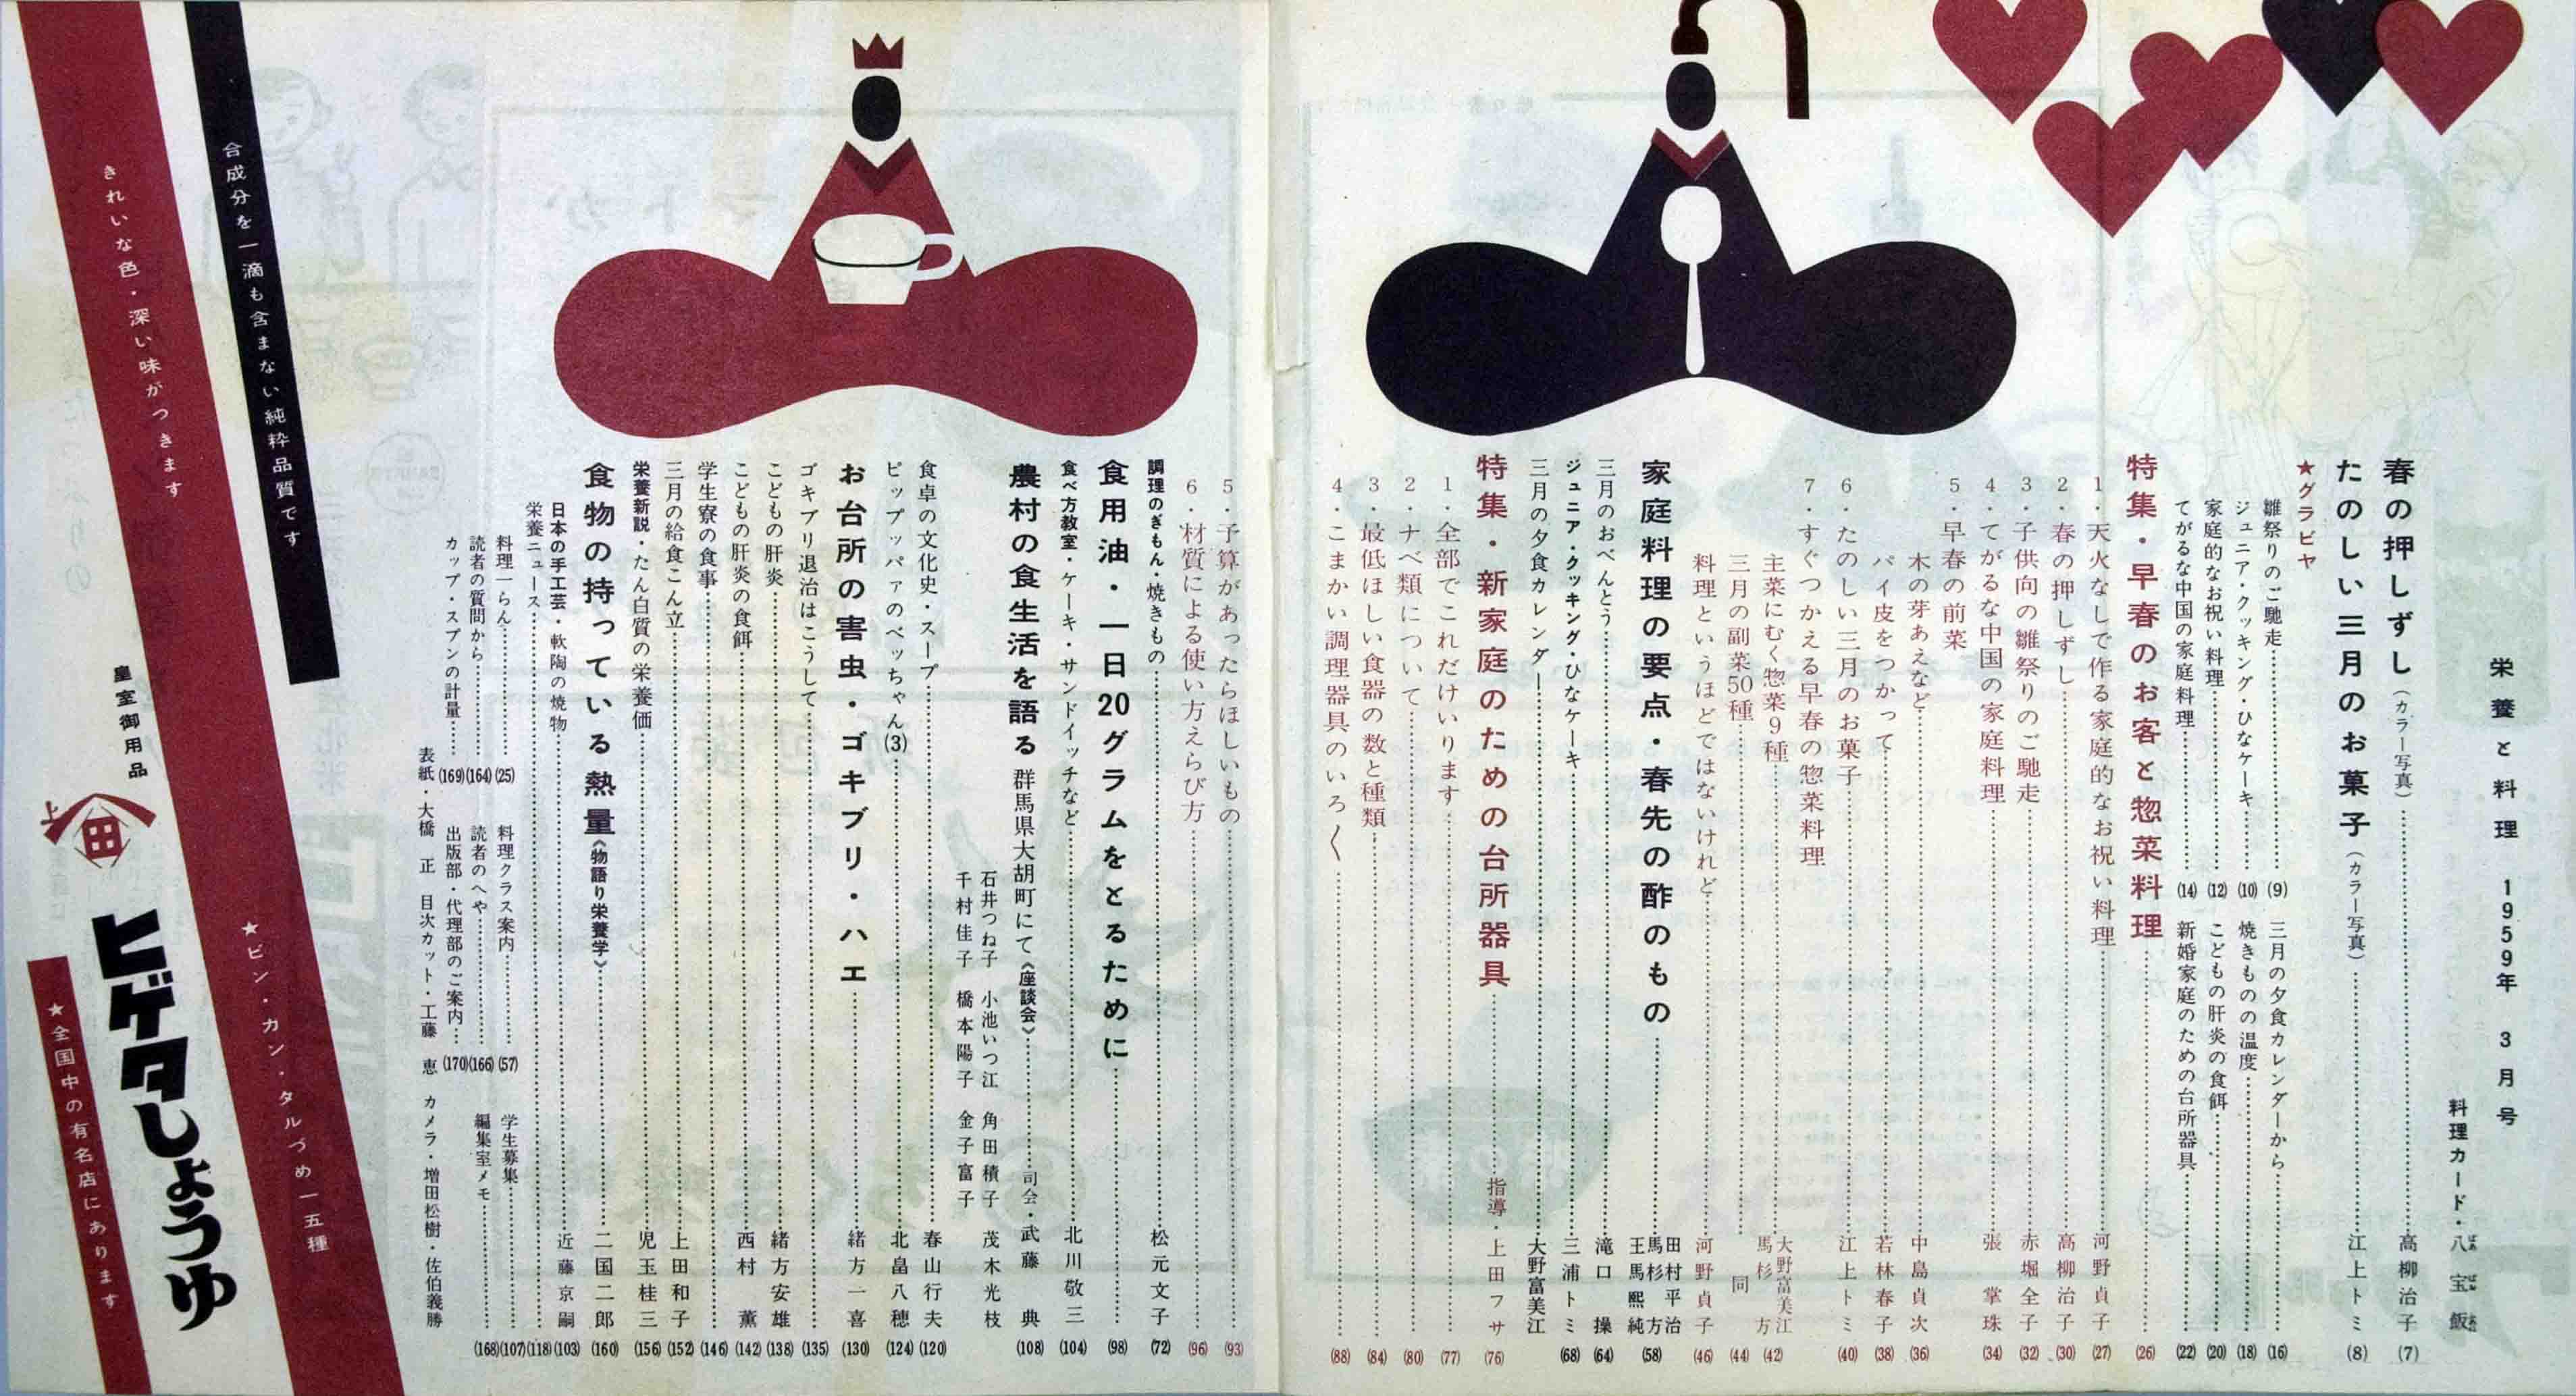 栄養と料理 1959年 3月号
料理カード・八宝飯
春の押しずし（カラー写真）……高柳治子 (7)
たのしい三月のお菓子（カラー写真）……江上トミ (8)
★グラビヤ
雛祭りのご馳走……(9)
ジュニア・クッキング・ひなケーキ……(10)
家庭的なお祝い料理……(12)
てがるな中国の家庭料理……(14)
三月の夕食カレンダーから……(16)
焼きものの温度……(18)
こどもの肝炎の食餌……(20)
新婚家庭のための台所器具……(22)
特集・早春のお客と惣菜料理……(26)
1・天火なしで作る家庭的なお祝い料理……河野貞子 (27)
2・春の押しずし……高柳治子 (30)
3・子供向の雛祭りのご馳走……赤堀全子 (32)
4・てがるな中国の家庭料理……張 掌珠 (34)
5・早春の前菜
木の芽あえなど……中島貞次 (36)
パイ皮をつかって……若林春子 (38)
6・たのしい三月のお菓子……江上トミ (40)
7・すぐつかえる早春の惣菜料理
主菜にむく惣菜9種……大野富美江 馬杉 方 (42)
三月の副菜50種……同 (44)
料理というほどではないけれど……河野貞子 (46)
家庭料理の要点・春先の酢のもの……田村平治 馬杉 方 王馬熙純 (58)
三月のおべんとう……滝口 操 (64)
ジュニア・クッキング・ひなケーキ……三浦トミ (68)
三月の夕食カレンダー……大野富美江
特集・新家庭のための台所器具……指導・上田フサ (76)
1・全部でこれだけいります……(77)
2・ナベ類について……(80)
3・最低ほしい食器の数と種類……(84)
4・こまかい調理器具のいろ〱……(88)
5・予算があったらほしいもの……(93)
6・材質による使い方えらび方……(96)
調理のぎもん・焼きもの……松元文子 (72)
食用油・一日20グラムをとるために……(98)
食べ方教室・ケーキ・サンドイッチなど……北川敬三 (104)
農村の食生活を語る 群馬県大胡町にて《座談会》……司会・武藤 典 (108)
石井つね子 小池いつ江 角田積子 茂木光枝
千村佳子 橋本陽子 金子富子
食卓の文化史・スープ……春山行夫 (120)
ピップッパァのべっちゃん(3)……北畠八穂 (124)
お台所の害虫・ゴキブリ・ハエ……緒方一喜 (130)
ゴキブリ退治はこうして……(135)
こどもの肝炎……緒方安雄 (138)
こどもの肝炎の食餌……西村 薫 (142)
学生寮の食事……(146)
三月の給食こん立……上田和子 (152)
栄養新説・たん白質の栄養価……児玉桂三 (156)
食物の持っている熱量《物語り栄養学》……二国二郎 (160)
日本の手工芸・軟陶の焼物……近藤京嗣 (103)
栄養ニュース……(118)
料理一らん……(25)
読者の質問から……(164)
カップ・スプンの計量……(169)
料理クラス案内……(57)
読者のへや……(166)
出版部・代理部のご案内……(170)
学生募集……(107)
編集室メモ……(168)
表紙・大橋 正 目次カット・工藤 恵 カメラ・増田松樹・佐伯義勝
合成分を一滴も含まない純粋品質です
きれいな色・深い味がつきます
★ビン・カン・タルづめ一五種
皇室御用品
上
ヒゲタしょうゆ
★全国中の有名店にあります